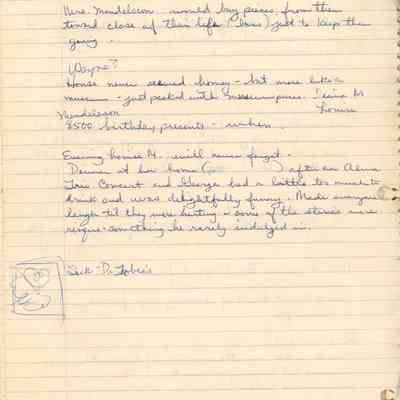 Mrs. Mendelson would buy pieces from them
toward close of their life (loans) just to keep them
going.
Wayne?
House never seemed homey - but more like a
museum - just packed with museum pieces.
Mendelson Louise
8500 birthday presents - when.
Evening Louise M. will never forget.
Dinner at her home ( ) after an Alma
Trio Concert and George had a little too much to
drink and was delightfully funny. Made everyone
laugh 'til they were hurting - some of the stories were
risque - something he rarely indulged in.
Sick - Dr. Tobias